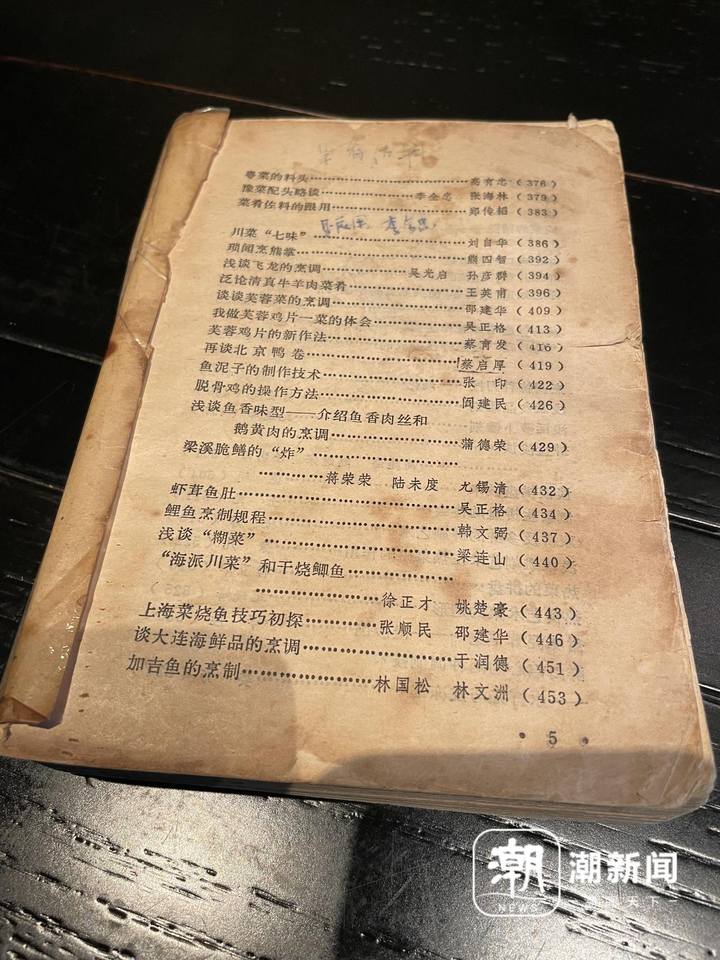 粤菜的料头……………………高有忠（376）
豫菜配头略谈……………李全忠 张海林（379）
菜肴佐料的跟用……………………郑传栢（383）
川菜“七味”……………………刘自华（386）
琐闻烹熊掌……………………熊四智（392）
浅谈飞龙的烹调……………吴光启 孙彦群（394）
泛论清真牛羊肉菜肴……………………王英甫（396）
谈谈芙蓉菜的烹调……………………邵建华（409）
我做芙蓉鸡片一菜的体会……………吴正格（413）
芙蓉鸡片的新作法……………………蔡育发（416）
再谈北京鸭卷……………………蔡启厚（419）
鱼泥子的制作技术……………………张 印（422）
脱骨鸡的操作方法……………………阎建民（426）
浅谈鱼香味型——介绍鱼香肉丝和
鹅黄肉的烹调……………………蒲德荣（429）
梁溪脆鳝的“炸”……………………
…………蒋荣荣 陆未度 尤锡清（432）
虾茸鱼肚……………………吴正格（434）
鲤鱼烹制规程……………………韩文弼（437）
浅谈“糊菜”……………………梁连山（440）
“海派川菜”和干烧鲫鱼……………
……………………徐正才 姚楚豪（443）
上海菜烧鱼技巧初探…………张顺民 邵建华（446）
谈大连海鲜品的烹调……………………于润德（451）
加吉鱼的烹制……………林国松 林文洲（453）
• 5 •
潮 潮新闻
NEWS 天下